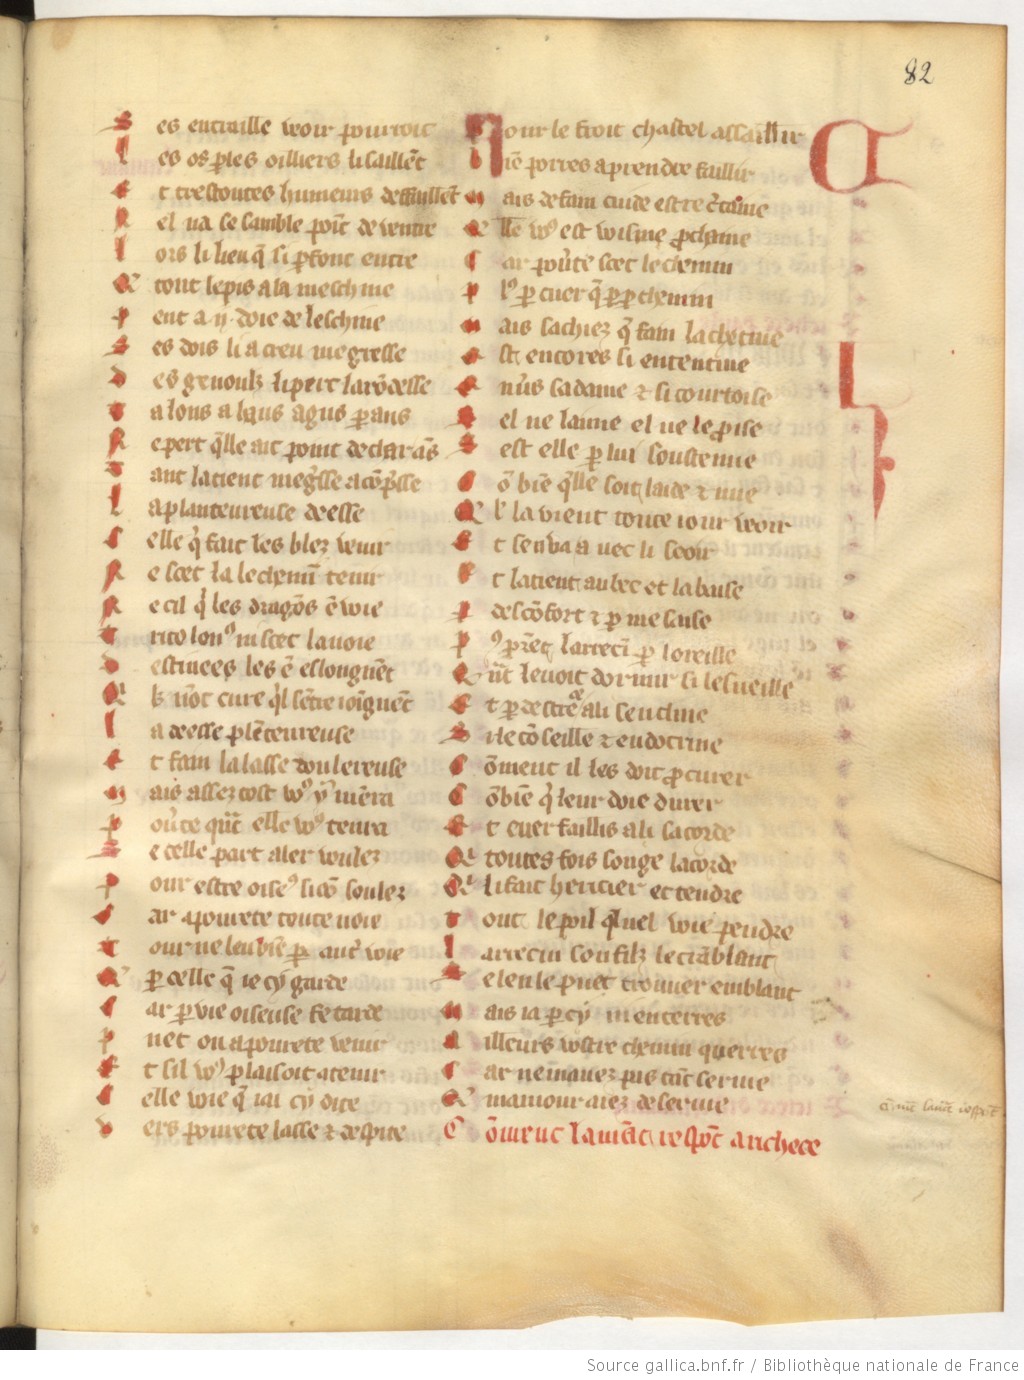 82
Ses entraille veoir pourroit
Les os p̲ les oilliers li saillēt
Et trestoutes humeurs deffaillēt
Nel va se samble poīt de ventre
Fors li lieu q̄ si p̲font entre
Q tout le pis a la meschine
Pent a .ij. doie de leschine
Ses dois li a creu megresse
Des genoulz li pert la rōdesse
Talons a haus agus p̲ans
Ne pert q̄lle ait point de char ans
Tant la tient megr̄sse a cōp̄sse
La planteureuse deesse
Celle q̄ fait les blez venir
Ne scet la le chemī tenir
Ne cil q̄ les dragōs ē voie
Tritolonꝰ ni scet la voie
Destinees les ē eslonguēt
Q̄ nōt cure q̄l sētre ioīguent
La deesse plēteureuse
Et fain la lasse doulereuse
Mais assez tost voꝰ y mēra
Pou̅te q̄nt elle voꝰ tenra
Se celle part aler voulez
Pour estre oiseꝰ si cō soulez
Car a pourete toute voie
Tour ne len biē p̲ aut̄ voie
Q̄ p̲ celle q̄ ie cy garde
Car p̲ vie oiseuse fetarde
Puet on a pourete venir
Et sil voꝰ plaisoit a tenir
Celle voie q̄ iai cy dite
Vers pourete lasse et despite
Pour le froit chastel assaillir
Biē porres a prendre faillir
Mais de fain cuide estre c̄taine
Q̄lle voꝰ est voisine p̲chaine
Car pou̅te scet le chemin
Plꝰ p̲ cuer q̄ p̲ p̲chemin
Mais sachiez q̄ fain la chetiue
Est encores si ententiue
Enūs sa dame et si courtoise
Nel ne lanne el ne le prise
Sest elle p̲ lui soustenue
Cō biē q̄lle soit laide et nue
Q̄l la vient toute iour veoir
Et se va auec li seoir
Et la tient au bec et la baise
P̲ desconfort et p̲ mesaise
Pꝰ prēt larrecī p̲ loreille
Q̄nt le voit dormir si lesueille
Et p̲ destrece a li sencline
Si le cōseille et endoctrine
Cōment il les doit p̲curer
Cōbiē q̄ leur doie durer
Et cuer faillis a li sacorde
Q̄ toutes fois songe la corde
Q̄ li fait hericier et tendre
Tout le poil q̄ nel voie pendre
Larrecin son filz le trāblant
Se len le puet trouuer emblant
Mais ia p̲ cy nienterres
Ailleurs vostre chemin querres
Car ne mauez pas tāt seruie
Q̄ mamour aiez deseruie
Cōment lamāt respōt a richece